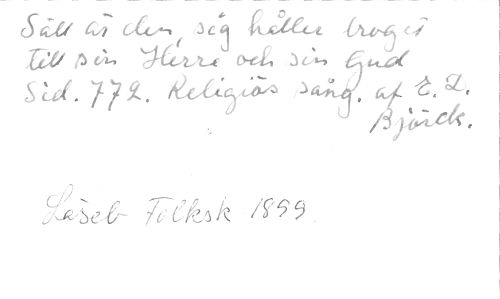 Säll är den, sig håller troget
till sin Herre och sin Gud
Sid. 772. Religiös sång. af E. D.
Björck.
Läseb Folksk 1899.